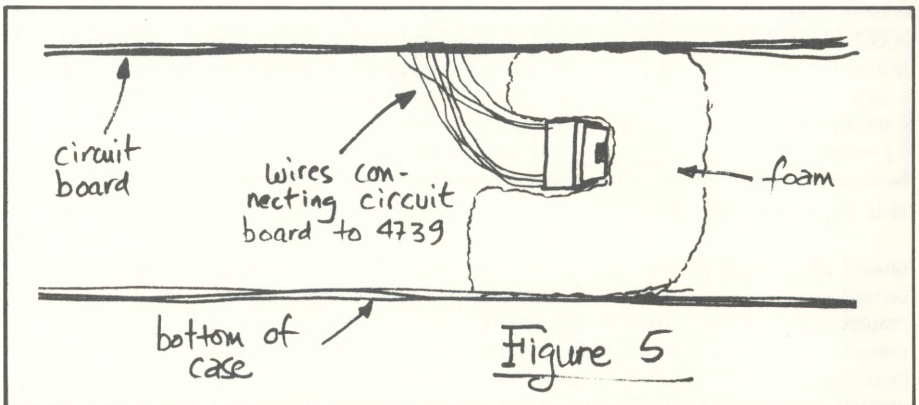 circuit
board
wires con-
necting circuit
board to 4739
foam
bottom of
case
Figure 5